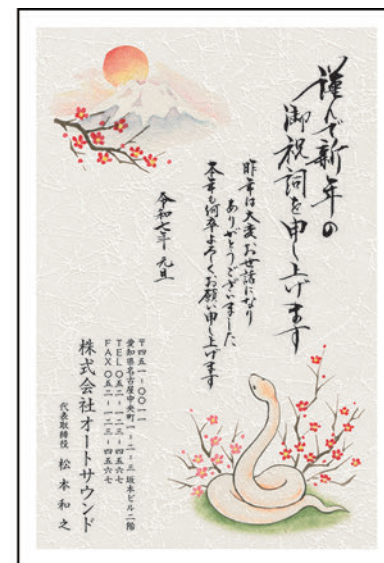 謹んで新年の
御祝詞を申し上げます
昨年は大変お世話になり
ありがとうございました
本年も何卒よろしくお願い申し上げます
令和七年 元旦
〒四五一-〇〇一一
愛知県名古屋中央町一-二-三 坂本ビル二階
TEL 〇五二-一二三-四五六七
FAX 〇五二-一二三-四五六七
株式会社オートサウンド
代表取締役 松本和之